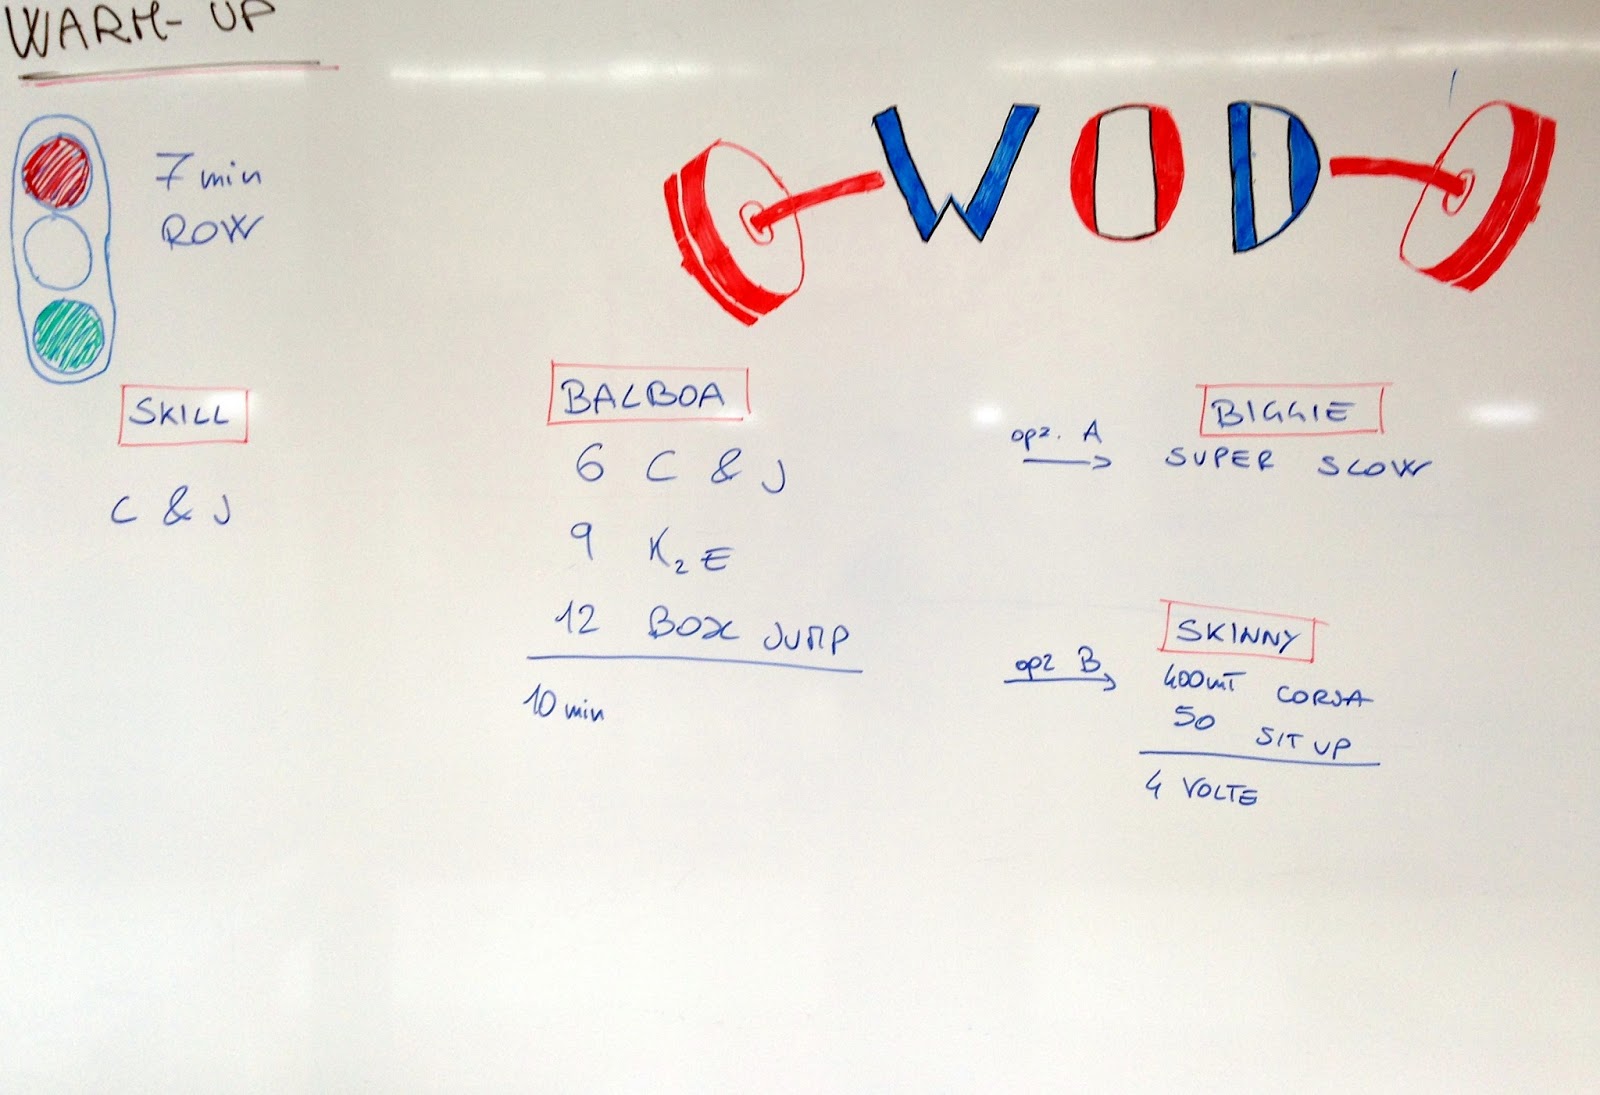 WARM-UP
7 min
ROW
SKILL
C & J
WOD
BALBOA
6 C & J
9 K2E
12 BOX JUMP
10 min
opz. A
BIGGIE
SUPER SLOW
opz B
SKINNY
400mT CORSA
50 SIT UP
4 VOLTE